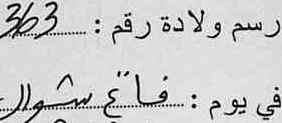 رسم ولادة رقم : 363
في يوم : فاتح شوال